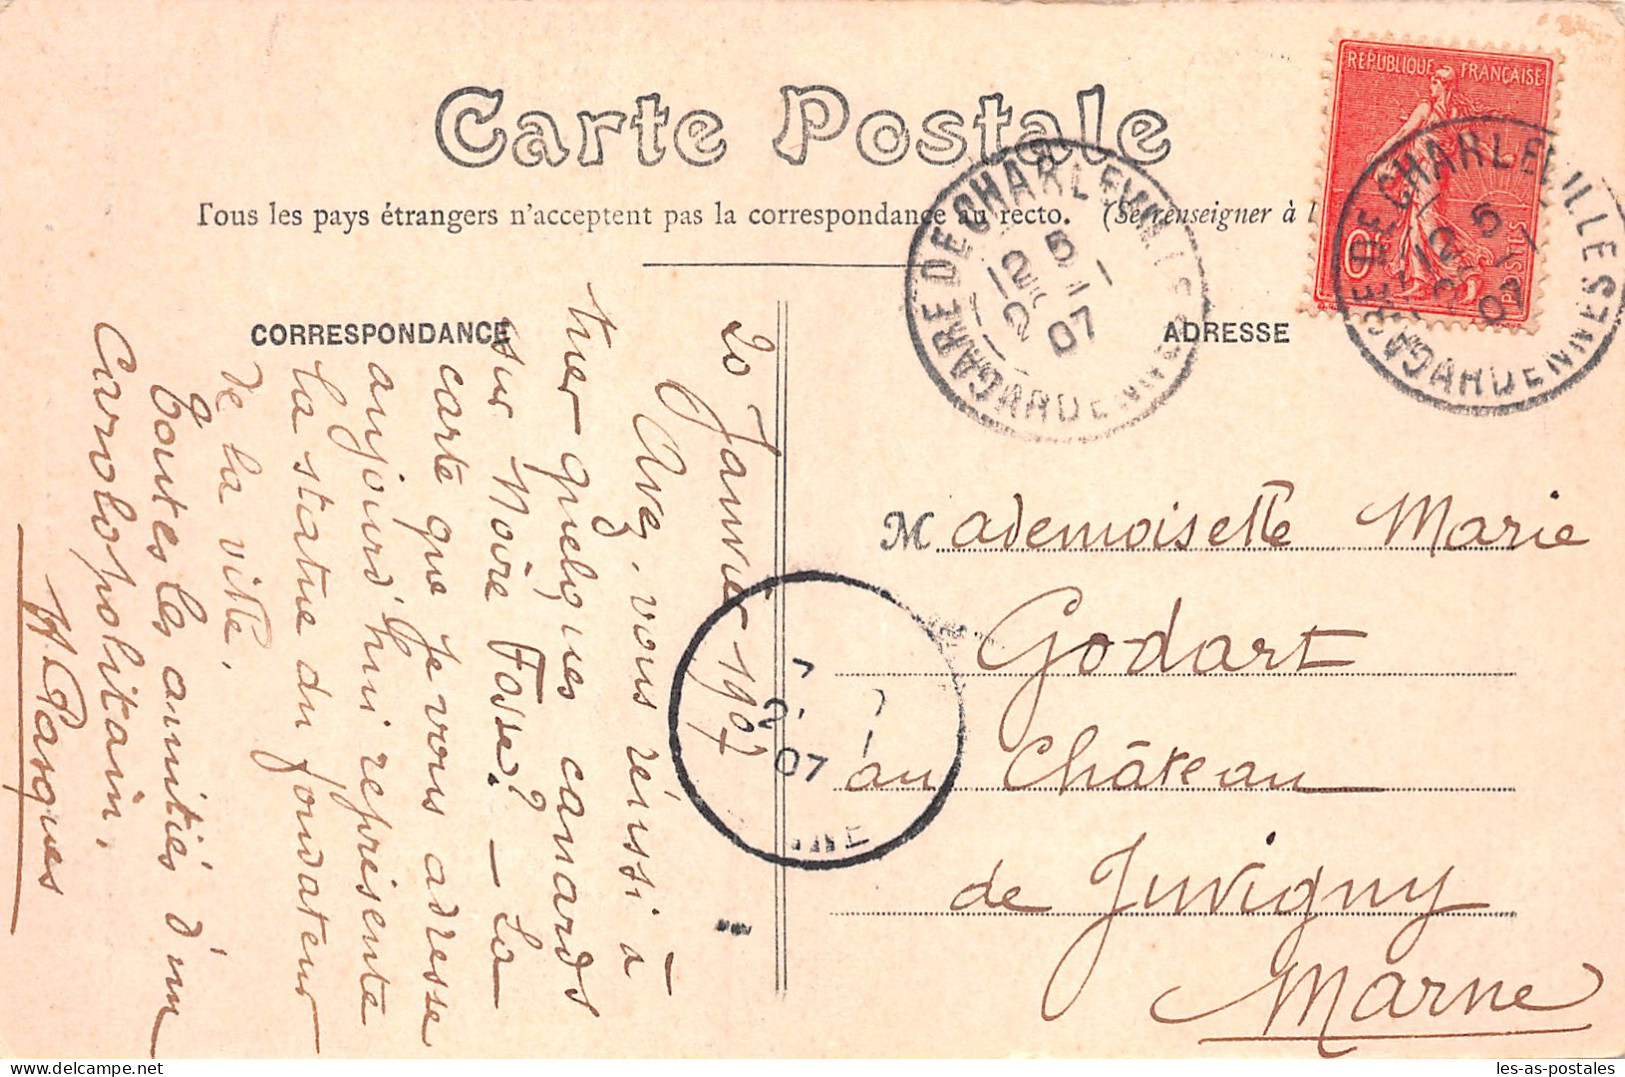 Carte Postale
Tous les pays étrangers n'acceptent pas la correspondance au recto. (Se renseigner à l
CORRESPONDANCE
ADRESSE
REPUBLIQUE FRANÇAISE
POSTES
GARE DE CHARLEVILLE
ARDENNES
12 5
2 -1
07
GARE DE CHARLEVILLE
ARDENNES
12 5
2 -1
07
20 Janvier 1907
Avez-vous réussi à
tuer quelques canards
sur Noire Fosse? — La
carte que je vous adresse
aujourd'hui représente
la statue du fondateur
de la ville.
Toutes les amitiés d'un
Carolopolitain.
H. Parques
Mademoiselle Marie
Godart
au Château
de Juvigny
Marne
07
les-as-postales